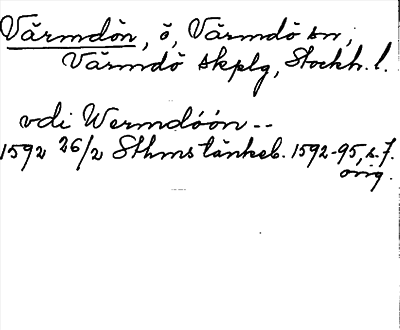 Värmdön, ö, Värmdö sn,
Värmdö skplg, Stockh. l.
vdi Wermdóón --
1592 26/2 Sthms tänkeb. 1592-95, s. 7.
orig.